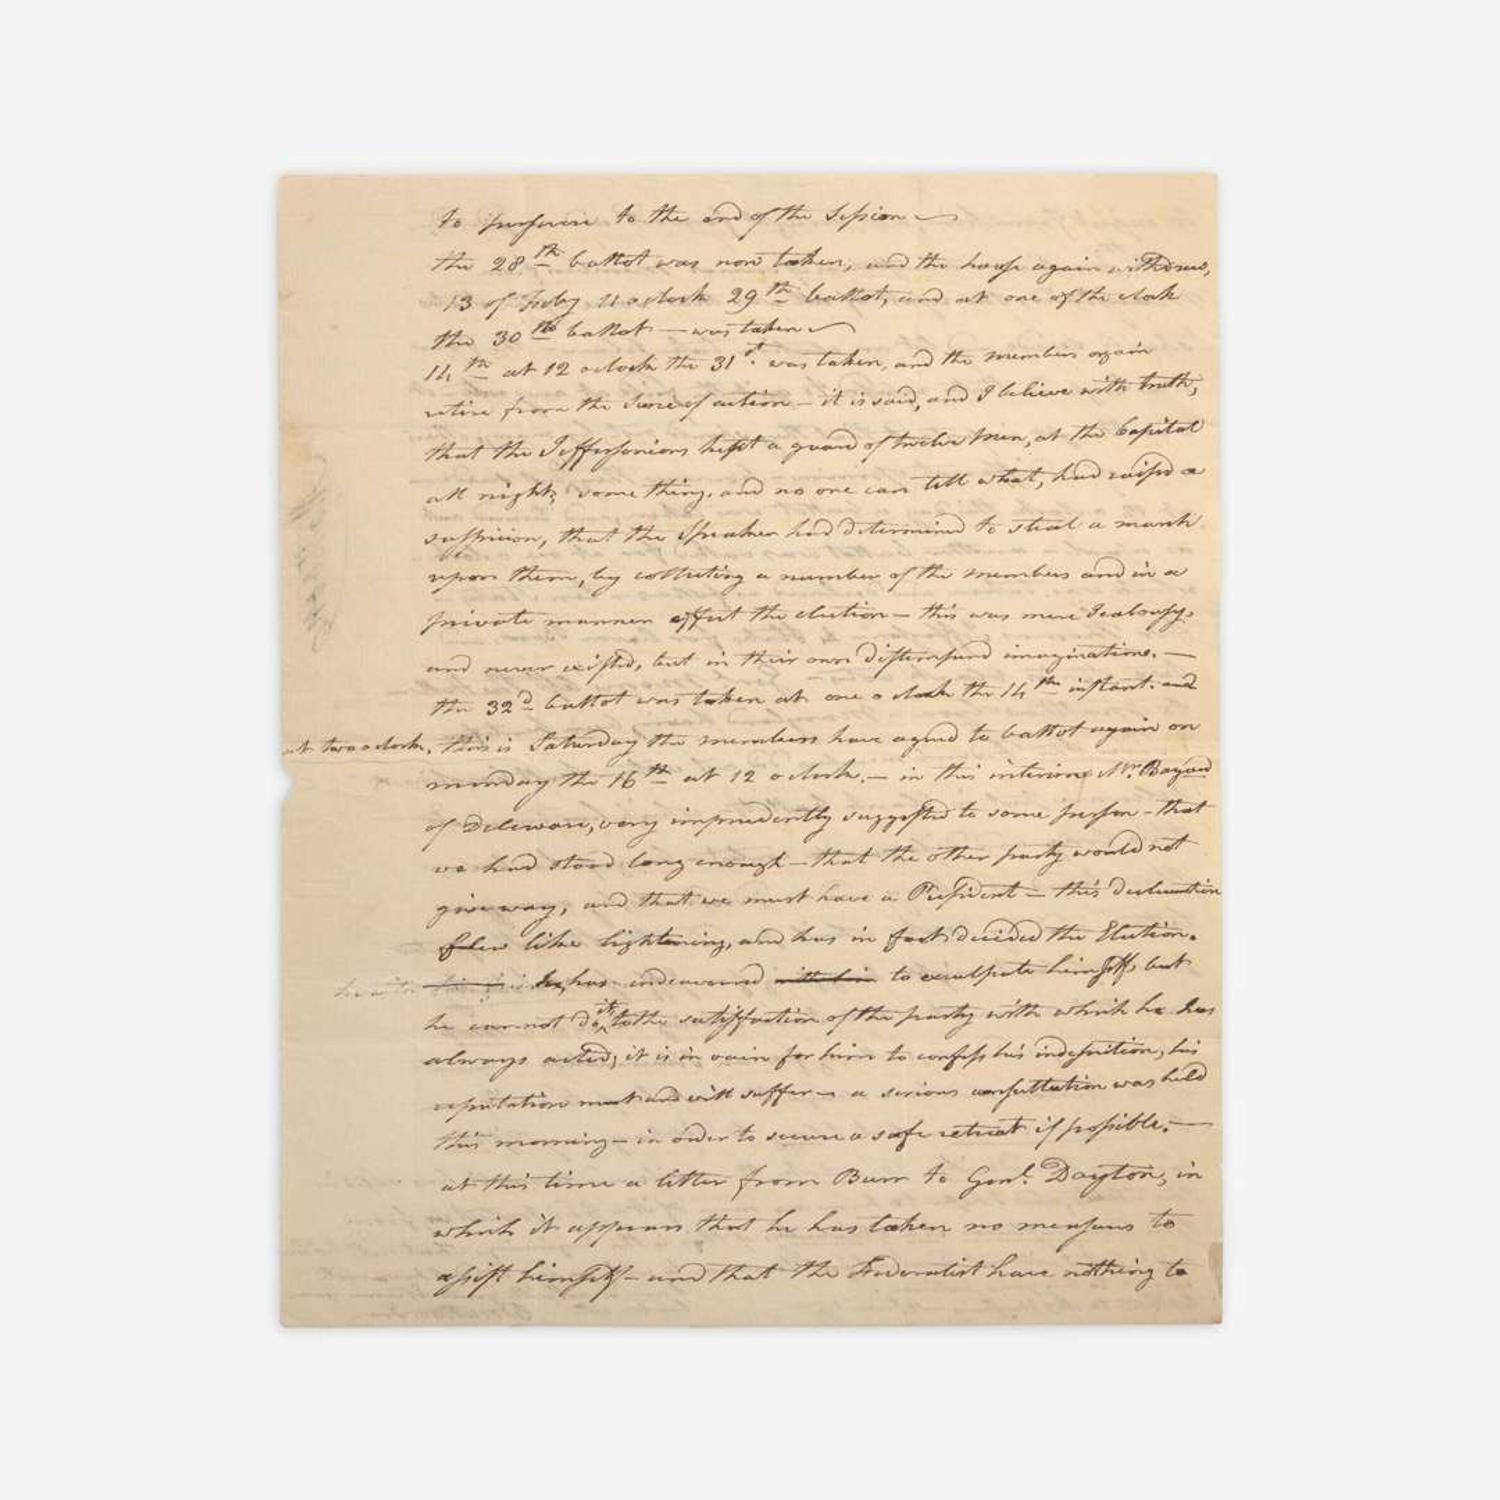 to persevere to the end of the Session —
the 28th ballot was now taken, and the house again withdrew,
13 of Feby 11 oclock 29th ballot, and at one of the clock
the 30th ballot — was taken —
14th at 12 oclock the 31st. was taken, and the members again
retire from the Scene of action — it is said, and I believe with truth,
that the Jeffersonians kept a guard of twelve Men, at the Capital
all night, something, and no one can tell what, had raised a
suspicion, that the Speaker had determined to steal a march
upon them, by collecting a number of the members and in a
private manner effect the election — this was mere Jealousy,
and never existed, but in their own distempered imaginations. —
the 32d ballot was taken at one oclock the 14th instant. and
at two oclock, this is Saturday the members have agreed to ballot again on
monday the 16th at 12 oclock. — in this interim Mr. Bayard
of Deleware, very imprudently suggested to some person — that
we had stood long enough — that the other party would not
give way, and that we must have a President — this declaration
flew like lightening, and has in fact decided the Election.
he has endeavoured to exculpate himself, but
he can not do it, to the satisfaction of the party with which he has
always acted, it is in vain for him to confess his indiscretion, his
reputation must and will suffer — a serious consultation was held
this morning — in order to secure a safe retreat if possible. —
at this time a letter from Burr to Genl. Dayton, in
which it appears that he has taken no measures to
assist himself — and that the Federalist have nothing to